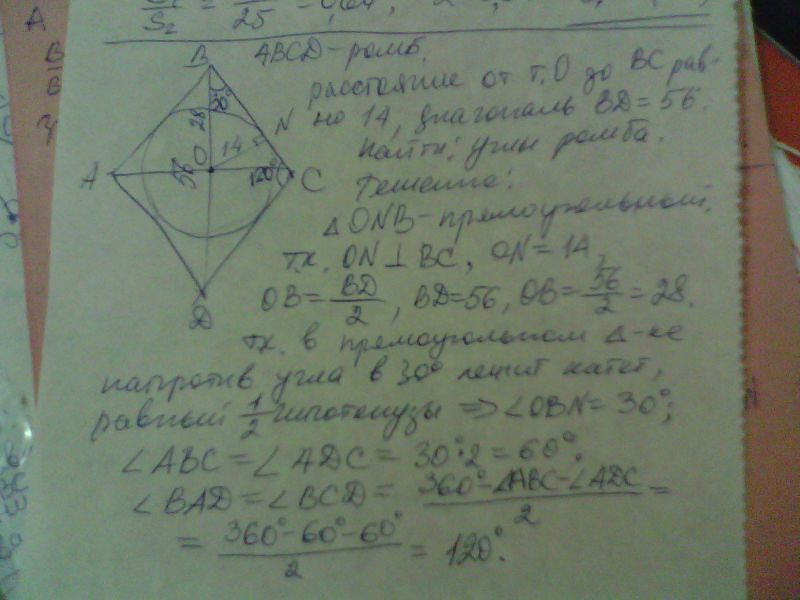 S₂ 25 = 0,64,
A
B
ABCD - ромб,
расстояние от т. O до BC рав-
но 14, диагональ BD = 56.
Найти: углы ромба.
Решение:
△ONB - прямоугольный,
т.к. ON ⊥ BC, ON = 14,
OB = BD/2, BD = 56, OB = 56/2 = 28.
т.к. в прямоугольном △-ке
напротив угла в 30° лежит катет,
равный 1/2 гипотенузы => ∠OBN = 30°;
∠ABC = ∠ADC = 30°·2 = 60°.
∠BAD = ∠BCD = 360° - ∠ABC - ∠ADC / 2 =
= 360° - 60° - 60° / 2 = 120°.
B
30°
28
N
14
O
56
A
120°
C
D